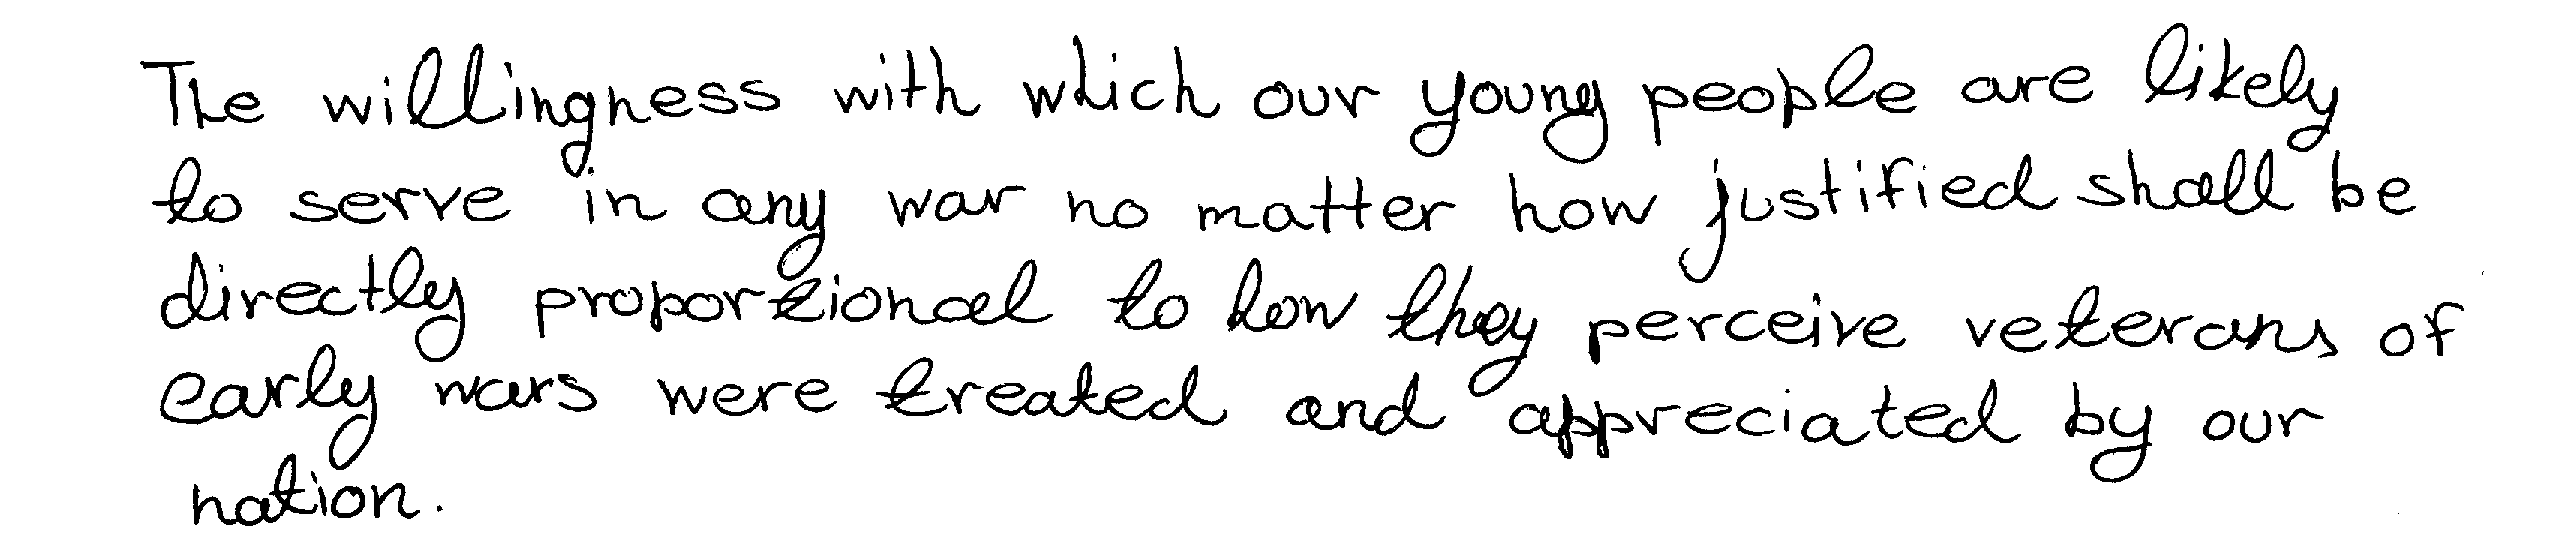 The willingness with which our young people are likely
to serve in any war no matter how justified shall be
directly proportional to how they perceive veterans of
early wars were treated and appreciated by our
nation.